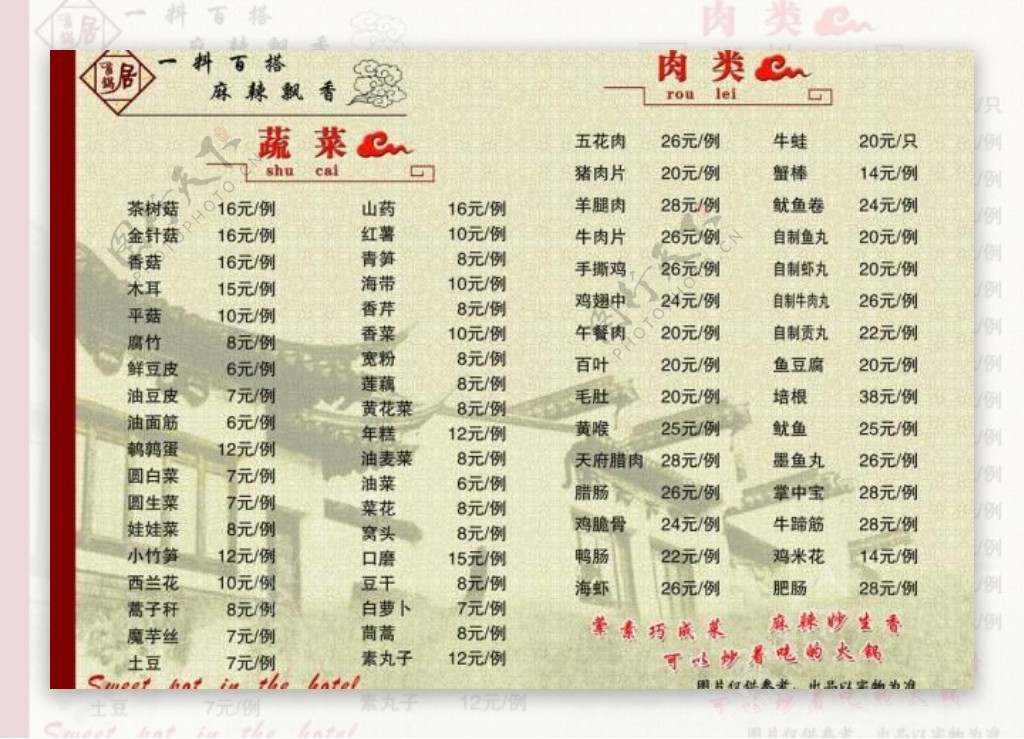 居
一料百搭
麻辣飘香
蔬菜
shu cai
茶树菇 16元/例
金针菇 16元/例
香菇 16元/例
木耳 15元/例
平菇 10元/例
腐竹 8元/例
鲜豆皮 6元/例
油豆皮 7元/例
油面筋 6元/例
鹌鹑蛋 12元/例
圆白菜 7元/例
圆生菜 7元/例
娃娃菜 8元/例
小竹笋 12元/例
西兰花 10元/例
蒿子秆 8元/例
魔芋丝 7元/例
土豆 7元/例
山药 16元/例
红薯 10元/例
青笋 8元/例
海带 10元/例
香芹 8元/例
香菜 10元/例
宽粉 8元/例
莲藕 8元/例
黄花菜 8元/例
年糕 12元/例
油麦菜 8元/例
油菜 6元/例
菜花 8元/例
窝头 8元/例
口磨 15元/例
豆干 8元/例
白萝卜 7元/例
茼蒿 8元/例
素丸子 12元/例
Sweet pot in the hotel
肉类
rou lei
五花肉 26元/例
猪肉片 20元/例
羊腿肉 28元/例
牛肉片 26元/例
手撕鸡 26元/例
鸡翅中 24元/例
午餐肉 20元/例
百叶 20元/例
毛肚 20元/例
黄喉 25元/例
天府腊肉 28元/例
腊肠 26元/例
鸡脆骨 24元/例
鸭肠 22元/例
海虾 26元/例
牛蛙 20元/只
蟹棒 14元/例
鱿鱼卷 24元/例
自制鱼丸 20元/例
自制虾丸 20元/例
自制牛肉丸 26元/例
自制贡丸 22元/例
鱼豆腐 20元/例
培根 38元/例
鱿鱼 25元/例
墨鱼丸 26元/例
掌中宝 28元/例
牛蹄筋 28元/例
鸡米花 14元/例
肥肠 28元/例
荤素巧成菜 麻辣妙生香
可以炒着吃的火锅
图片仅供参考，出品以实物为准